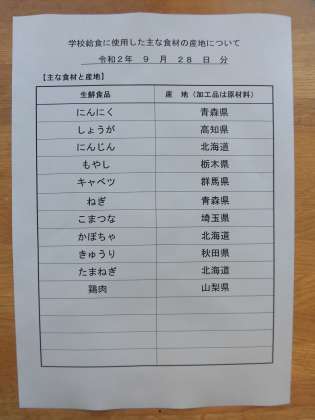 学校給食に使用した主な食材の産地について
令和2年 9 月 28 日 分
【主な食材と産地】
生鮮食品 産 地（加工品は原材料）
にんにく 青森県
しょうが 高知県
にんじん 北海道
もやし 栃木県
キャベツ 群馬県
ねぎ 青森県
こまつな 埼玉県
かぼちゃ 北海道
きゅうり 秋田県
たまねぎ 北海道
鶏肉 山梨県